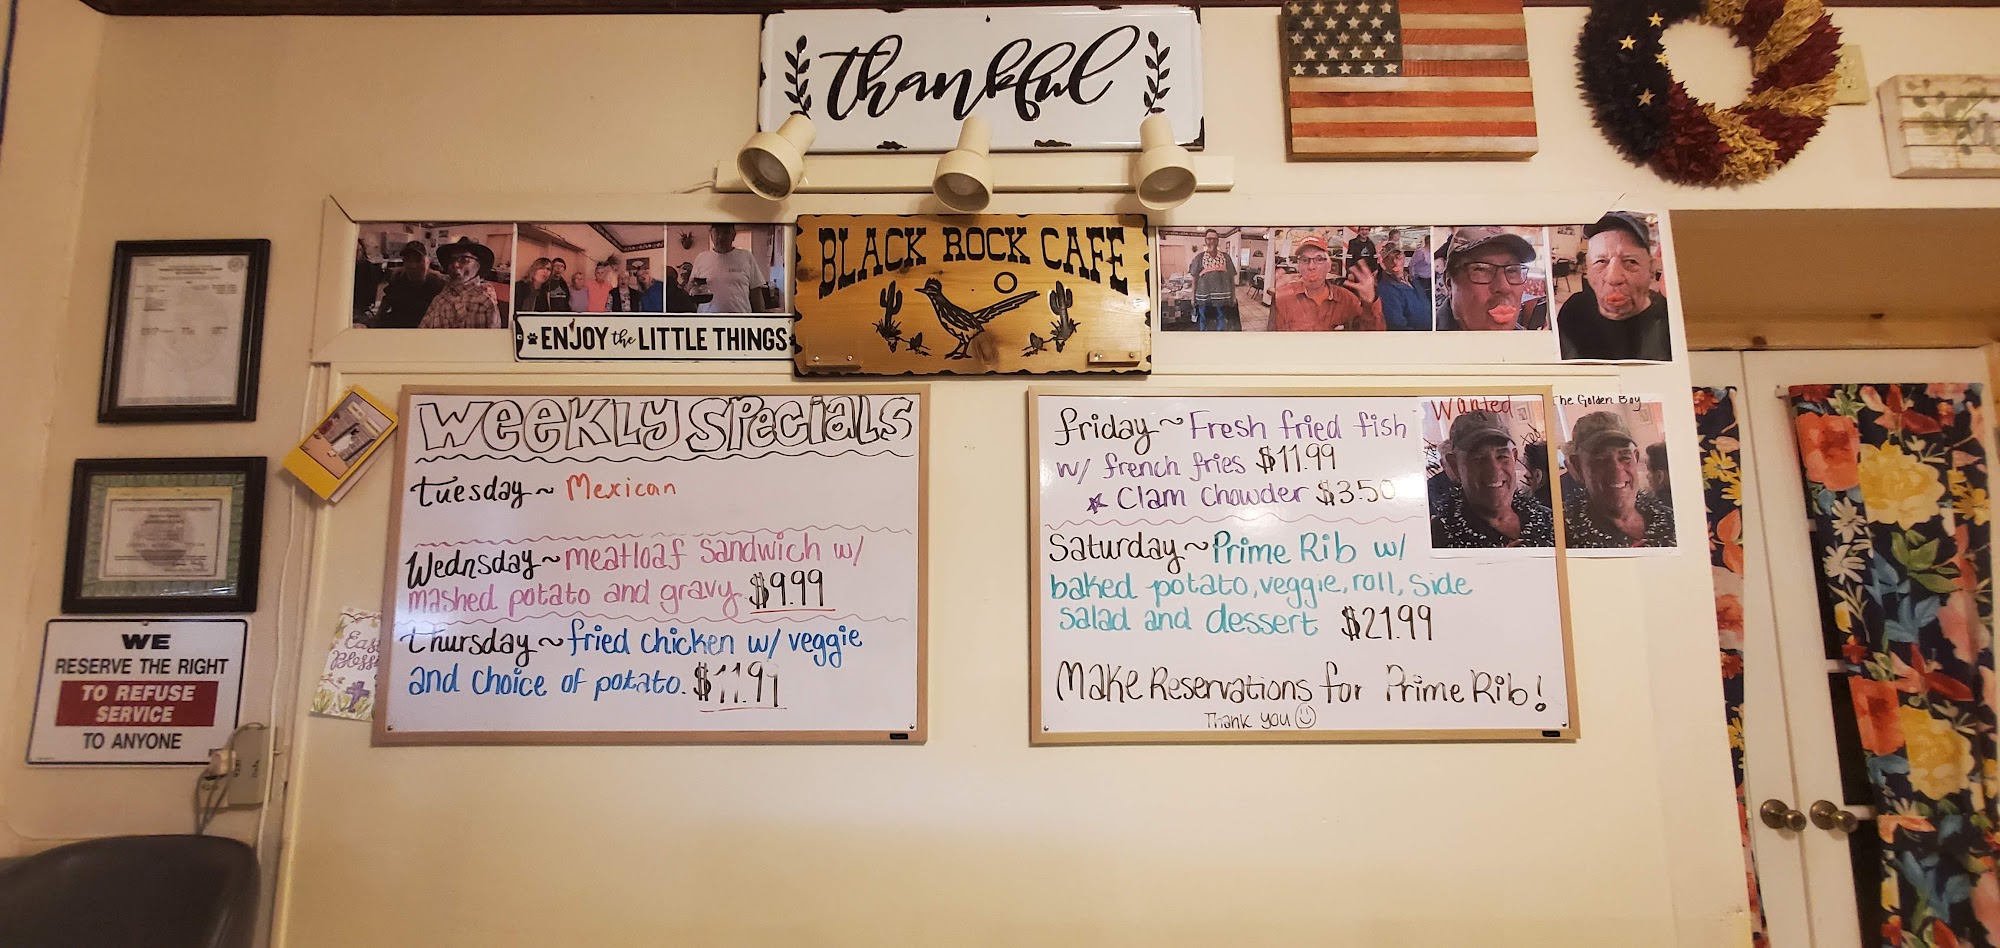 Thankful
BLACK ROCK CAFE
ENJOY the LITTLE THINGS
WEEKLY SPECIALS
Tuesday ~ Mexican
Wednsday ~ meatloaf sandwich w/
mashed potato and gravy $9.99
Thursday ~ fried chicken w/ veggie
and choice of potato. $11.99
Friday ~ Fresh fried fish
w/ french fries $11.99
☆ Clam Chowder $3.50
Saturday ~ Prime Rib w/
baked potato, veggie, roll, side
salad and dessert $21.99
Make Reservations for Prime Rib!
Thank you ☺
Wanted
The Golden Boy
WE
RESERVE THE RIGHT
TO REFUSE
SERVICE
TO ANYONE